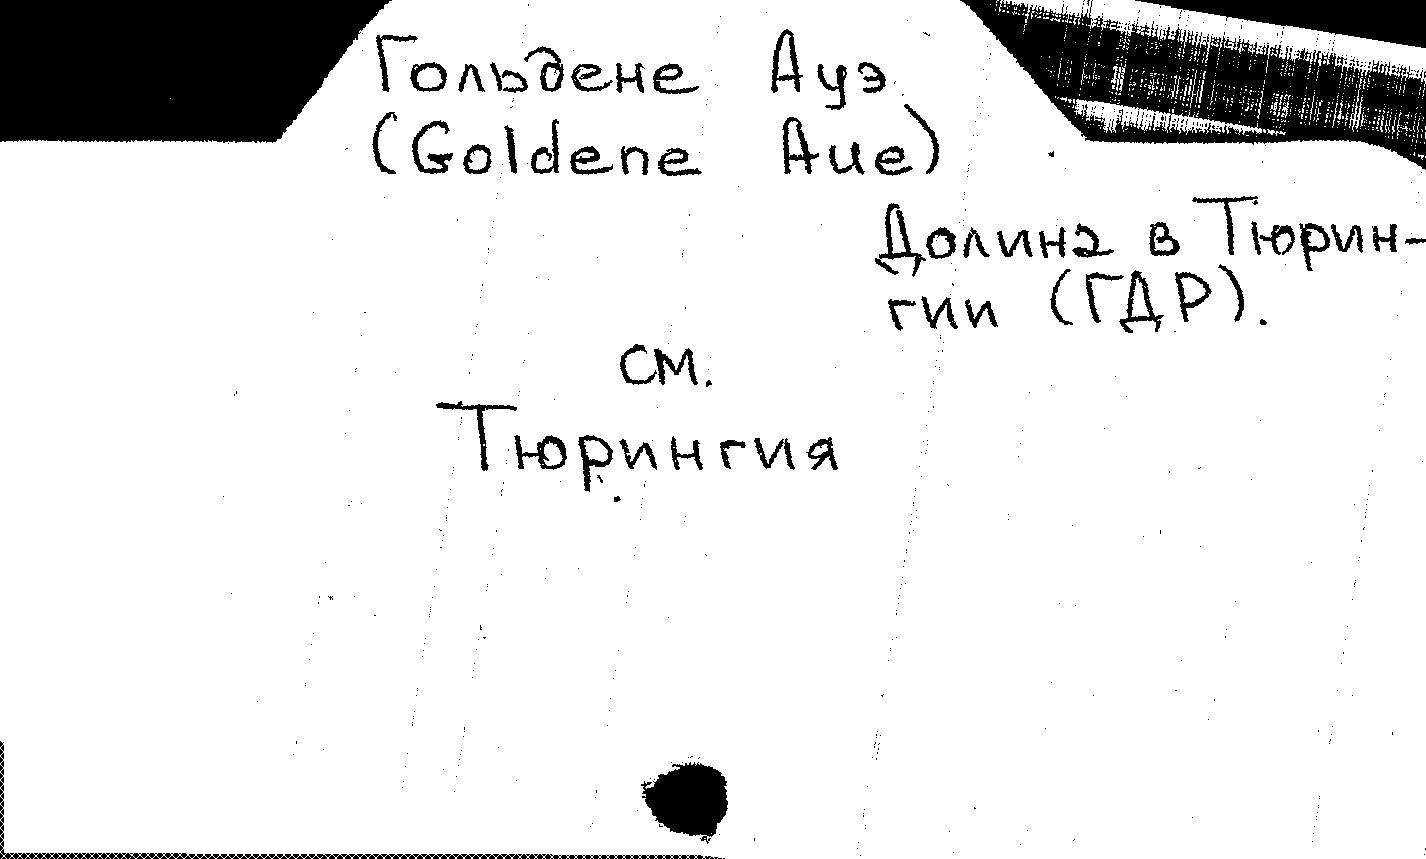 Гольдене Ауэ
(Goldene Aue)
Долина в Тюрин-
гии (ГДР).
см.
Тюрингия